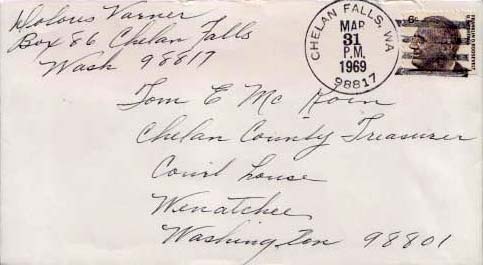 Dolores Varner
Box 86 Chelan Falls
Wash 98817
CHELAN FALLS, WA
MAR
31
P.M.
1969
98817
6¢
Tom E Mc Koin
Chelan County Treasurer
Court house
Wenatchee
Washington 98801